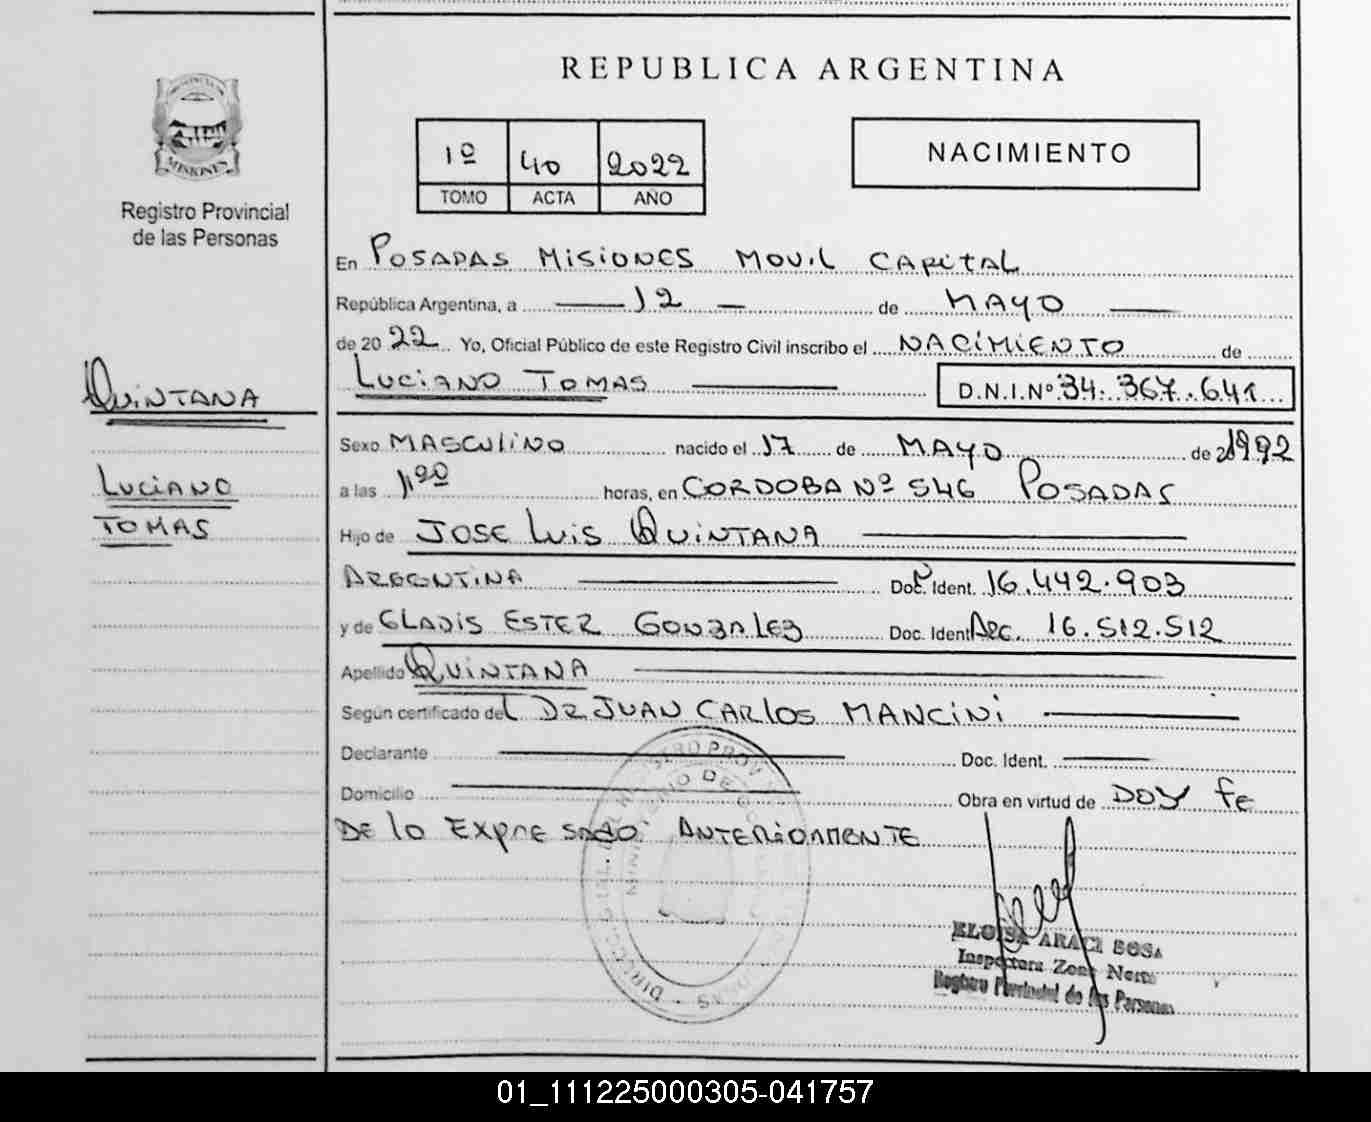 REPUBLICA ARGENTINA
MISIONES
Registro Provincial
de las Personas
1º 40 2022
TOMO ACTA AÑO
NACIMIENTO
En POSADAS MISIONES MOVIL CAPITAL
República Argentina, a 12 de MAYO
de 2022 Yo, Oficial Público de este Registro Civil inscribo el NACIMIENTO de
LUCIANO TOMAS D.N.I.Nº 34.367.641
QUINTANA
LUCIANO
TOMAS
Sexo MASCULINO nacido el 17 de MAYO de 1992
a las horas, en CORDOBA Nº 546 POSADAS
Hijo de JOSE LUIS QUINTANA
ARGENTINA Doc. Ident. 16.442.903
y de GLADIS ESTER GONZALEZ Doc. Ident. ARG. 16.512.512
Apellido QUINTANA
Según certificado del DR JUAN CARLOS MANCINI
Declarante Doc. Ident.
Domicilio Obra en virtud de DOY FE
DE LO EXPRESADO ANTERIORMENTE
REGISTRO PROV
MINISTERIO DE
ELOISA ARACI BOSA
Inspectora Zona Norte
Registro Provincial de las Personas
01_111225000305-041757